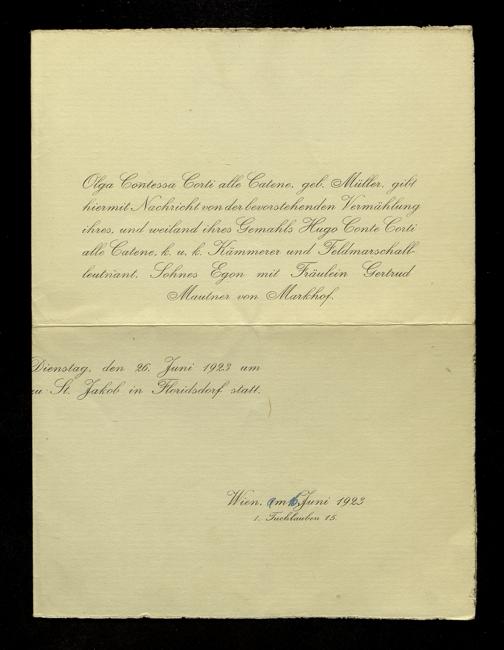 Olga Contessa Corti alle Catene, geb. Müller, gibt
hiermit Nachricht von der bevorstehenden Vermählung
ihres, und weiland ihres Gemahls Hugo Conte Corti
alle Catene, k. u. k. Kämmerer und Feldmarschall-
leutnant, Sohnes Egon mit Fräulein Gertrud
Mautner von Markhof.
Dienstag, den 26. Juni 1923 um
zu St. Jakob in Floridsdorf statt.
Wien, im Juni 1923
1. Tuchlauben 15.